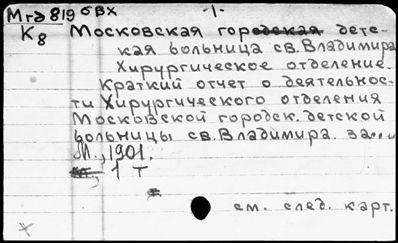 МгД 819 бвх -1-
К8 Московская городская детс-
кая больница св. Владимира
Хирургическое отделение.
Краткий отчет о деятельнос-
ти Хирургического отделения
Московской городск. детской
больницы св. Владимира. за
М., 1901.
1 т
см. след. карт.